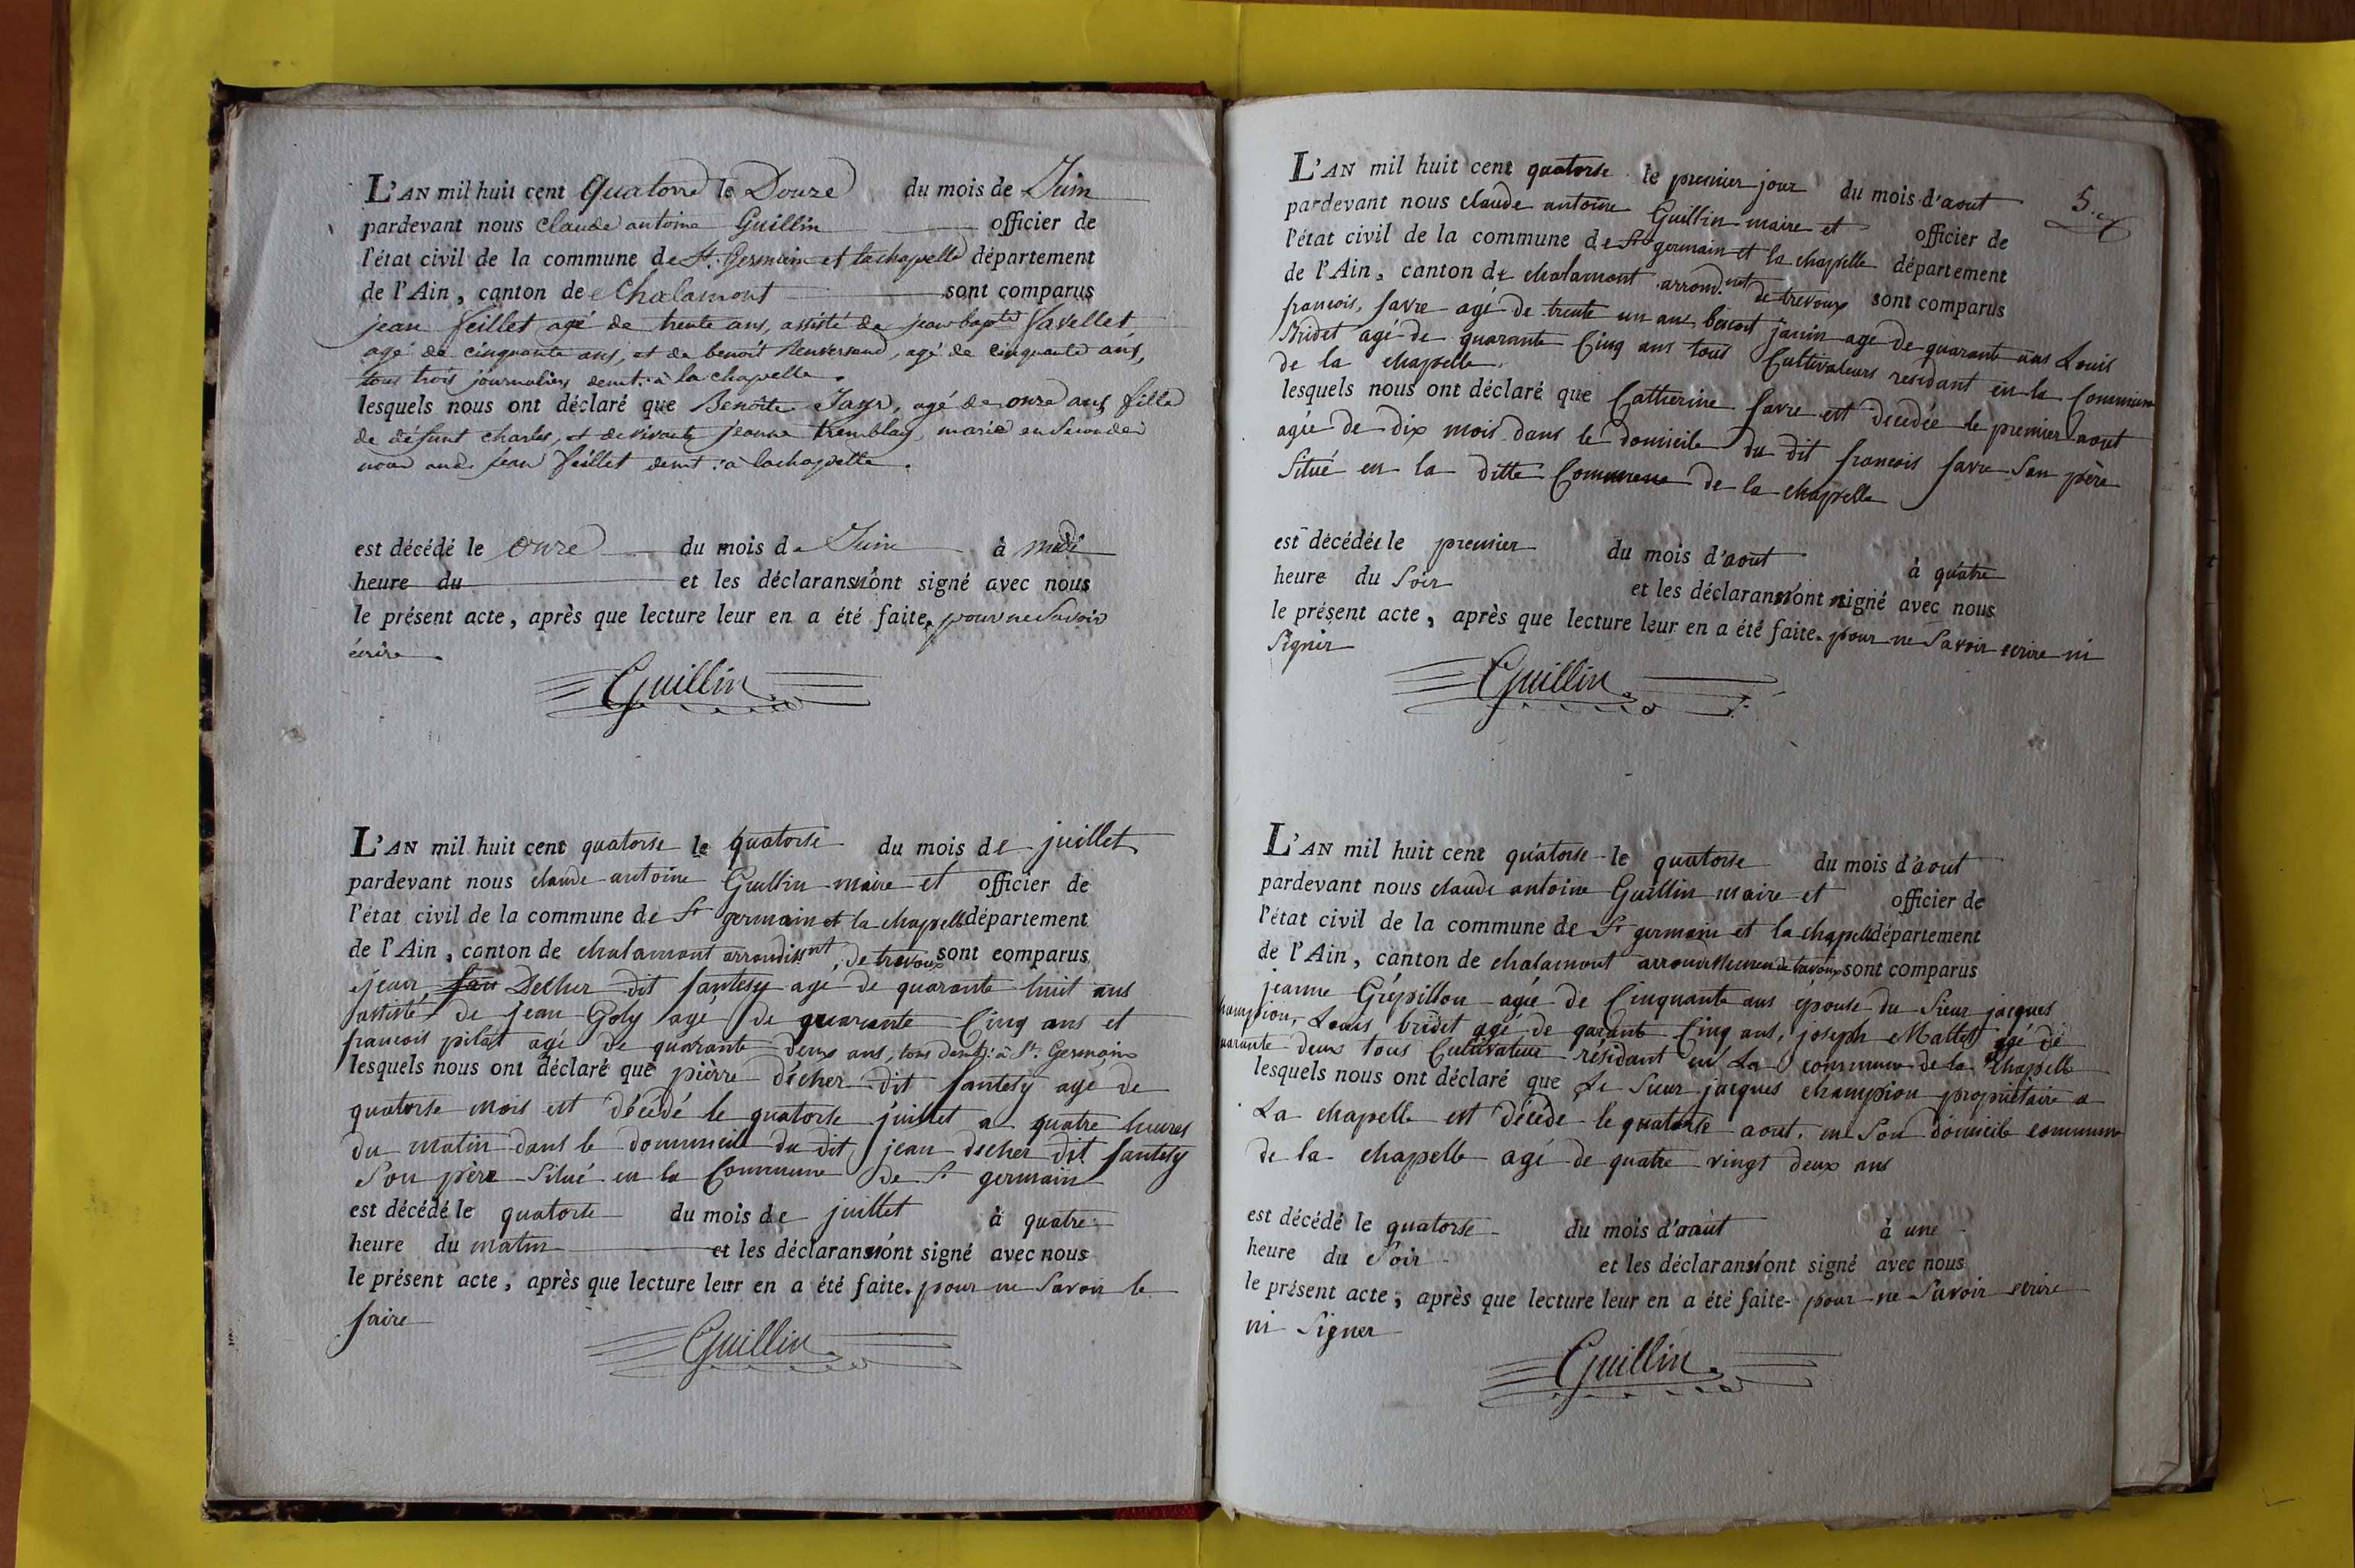 L'AN mil huit cent quatorze le Douze du mois de Juin
pardevant nous claude antoine Guillin officier de
l'état civil de la commune de St. Germain et lachapelle département
de l'Ain, canton de Chalamont sont comparus
jean feillet agé de trente ans, assisté de jean bapte favellet,
agé de cinquante ans, et de benoit Renversend, agé de cinquante ans,
tous trois journaliers demt. à la chapelle.
lesquels nous ont déclaré que Benoîte Jayr, agé de onze ans fille
de défunt charles, et de vivante jeanne tremblay, marié en Secondes
aud. jean feillet demt. à lachapelle.
est décédé le onze du mois de Juin à midi
heure du et les déclarans n'ont signé avec nous
le présent acte, après que lecture leur en a été faite, pour ne Savoir
écrire.
Guillin
L'AN mil huit cent quatorse le quatorse du mois de juillet
pardevant nous claude antoine Guillin maire et officier de
l'état civil de la commune de St germain et la chapelle département
de l'Ain, canton de chalamont arrondissnt, de trevoux sont comparus
jean Decher dit fantesy agé de quarante huit ans
assisté de jean Goly agé de quarante Cinq ans et
francois pilat agé de quarante deux ans, tous demt: à St. Germain
lesquels nous ont déclaré que pierre décher dit fantesy agé de
quatorse mois est décédé le quatorse juillet a quatre heures
du matin dans le dommicile du dit jean decher dit fantesy
Son père Situé en la Commune de St germain
est décédé le quatorse du mois de juillet à quatre
heure du matin et les déclarans n'ont signé avec nous
le présent acte, après que lecture leur en a été faite. pour ne Savoir le
faire
Guillin
5.
L'AN mil huit cent quatorse le premier jour du mois d'aout
pardevant nous claude antoine Guillin maire et officier de
l'état civil de la commune de St germain et la chapelle département
de l'Ain, canton de chalamont arrond.nt de trevoux sont comparus
francois, favre agé de trente un ans, benoit janin age de quarante ans Louis
Bridet agé de quarante Cinq ans tous Cultivateurs residant en la Commune
de la chapelle.
lesquels nous ont déclaré que Catherine favre est decedée le premier aout
agée de dix mois dans le domicile du dit francois favre Son père
Situé en la ditte Commune de la chapelle
est décédée le premier du mois d'aout à quatre
heure du Soir et les déclarans n'ont signé avec nous
le présent acte, après que lecture leur en a été faite. pour ne Savoir ecrire ni
Signer
Guillin
L'AN mil huit cent quatorse le quatorse du mois d'aout
pardevant nous claude antoine Guillin maire et officier de
l'état civil de la commune de St germain et la chapelle département
de l'Ain, canton de chalamont arrondissement de trévoux sont comparus
jeanne Grépillon agée de Cinquante ans épouse du Sieur jacques
champion, Louis bridet agé de quarante Cinq ans, joseph Mallet agé de
quarante deux tous Cultivateur résidant en La commune de la Chapelle
lesquels nous ont déclaré que Le Sieur jacques champion propriétaire a
La chapelle est décédé le quatorse aout. en Son domicile commune
de la chapelle agé de quatre vingt deux ans
est décédé le quatorse du mois d'aout à une
heure du Soir et les déclarans n'ont signé avec nous
le présent acte, après que lecture leur en a été faite pour ne Savoir ecrire
ni Signer
Guillin